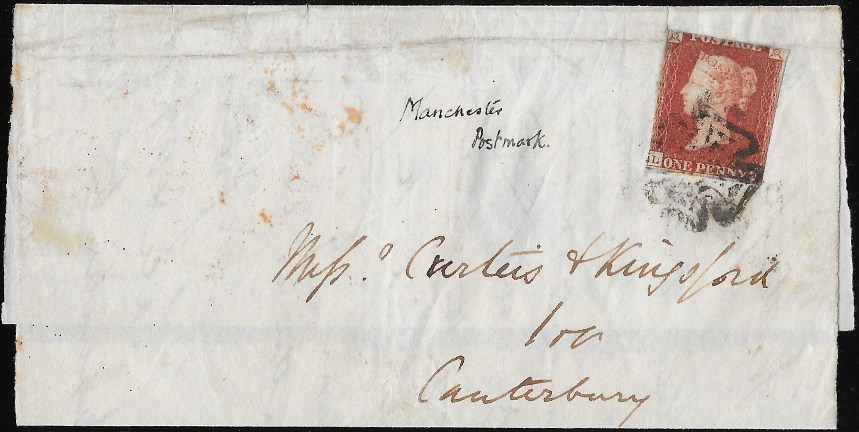 POSTAGE
Manchester
Postmark.
L
ONE PENNY
Messrs. Curteis & Kingsford
Canterbury